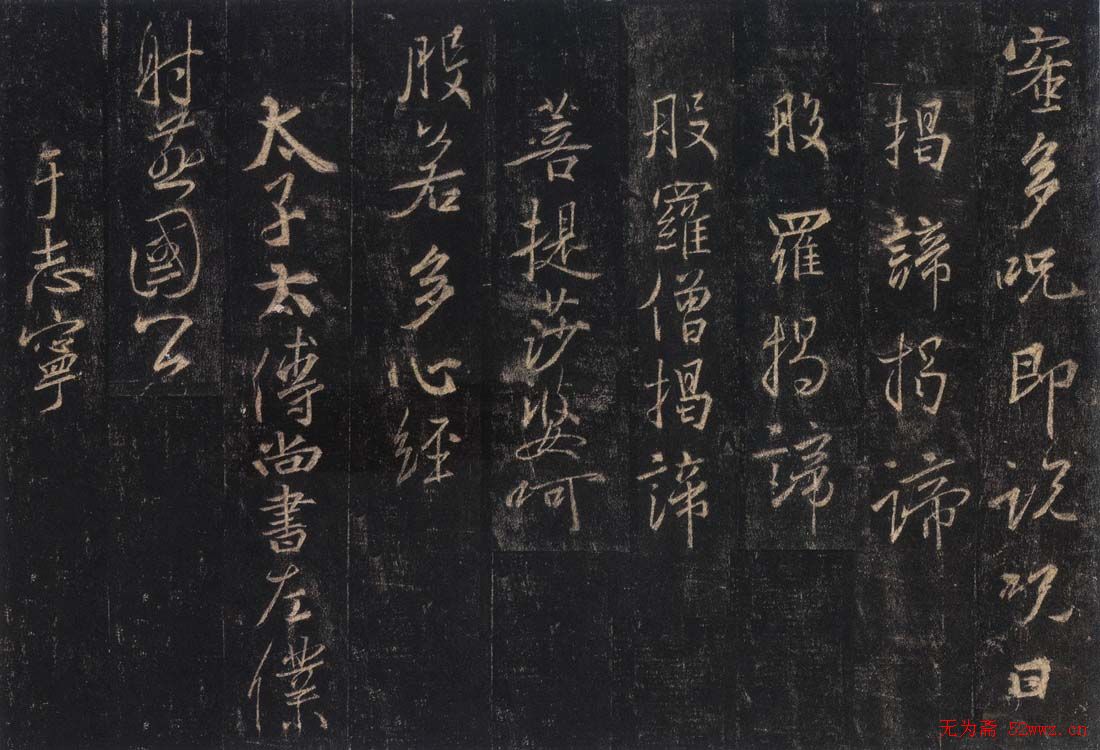 蜜多呪即説呪曰
揭諦揭諦
般羅揭諦
般羅僧揭諦
菩提莎婆呵
般若多心經
太子太傅尚書左僕
射燕國公
于志寧
无为斋 52wwz.cn